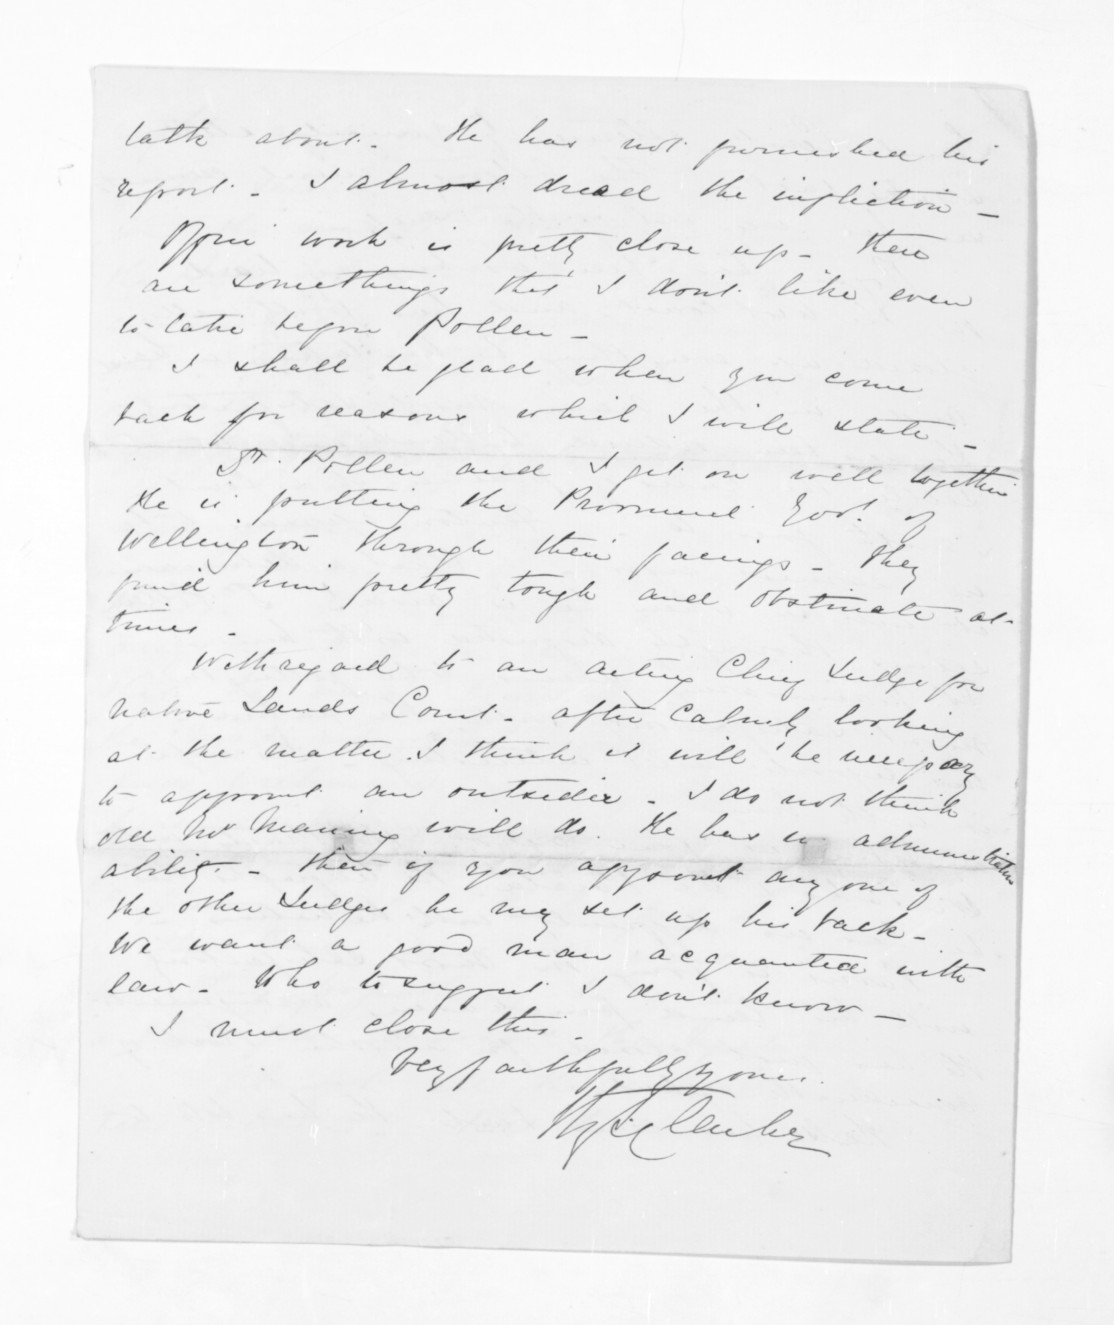 talk about. He has not furnished his
report. I almost dread the infliction -
Office work is pretty close up - there
are somethings that I don't like even
to take before Pollen -
I shall be glad when you come
back for reasons which I will state -
Dr. Pollen and I get on well together
He is putting the Provincial Govt. of
Wellington through their facings - They
find him pretty tough and obstinate at
times -
With regard to an acting Chief Judge for
Native Lands Court - after calmly looking
at the matter. I think it will be necessary
to appoint an outsider - I do not think
old Mr Maning will do. He has no administrative
ability - then if you appoint any one of
the other Judges he may set up his back -
We want a good man acquainted with
law - Who to suggest I don't know -
I must close this.
Very faithfully yours.
H. T. Clarke